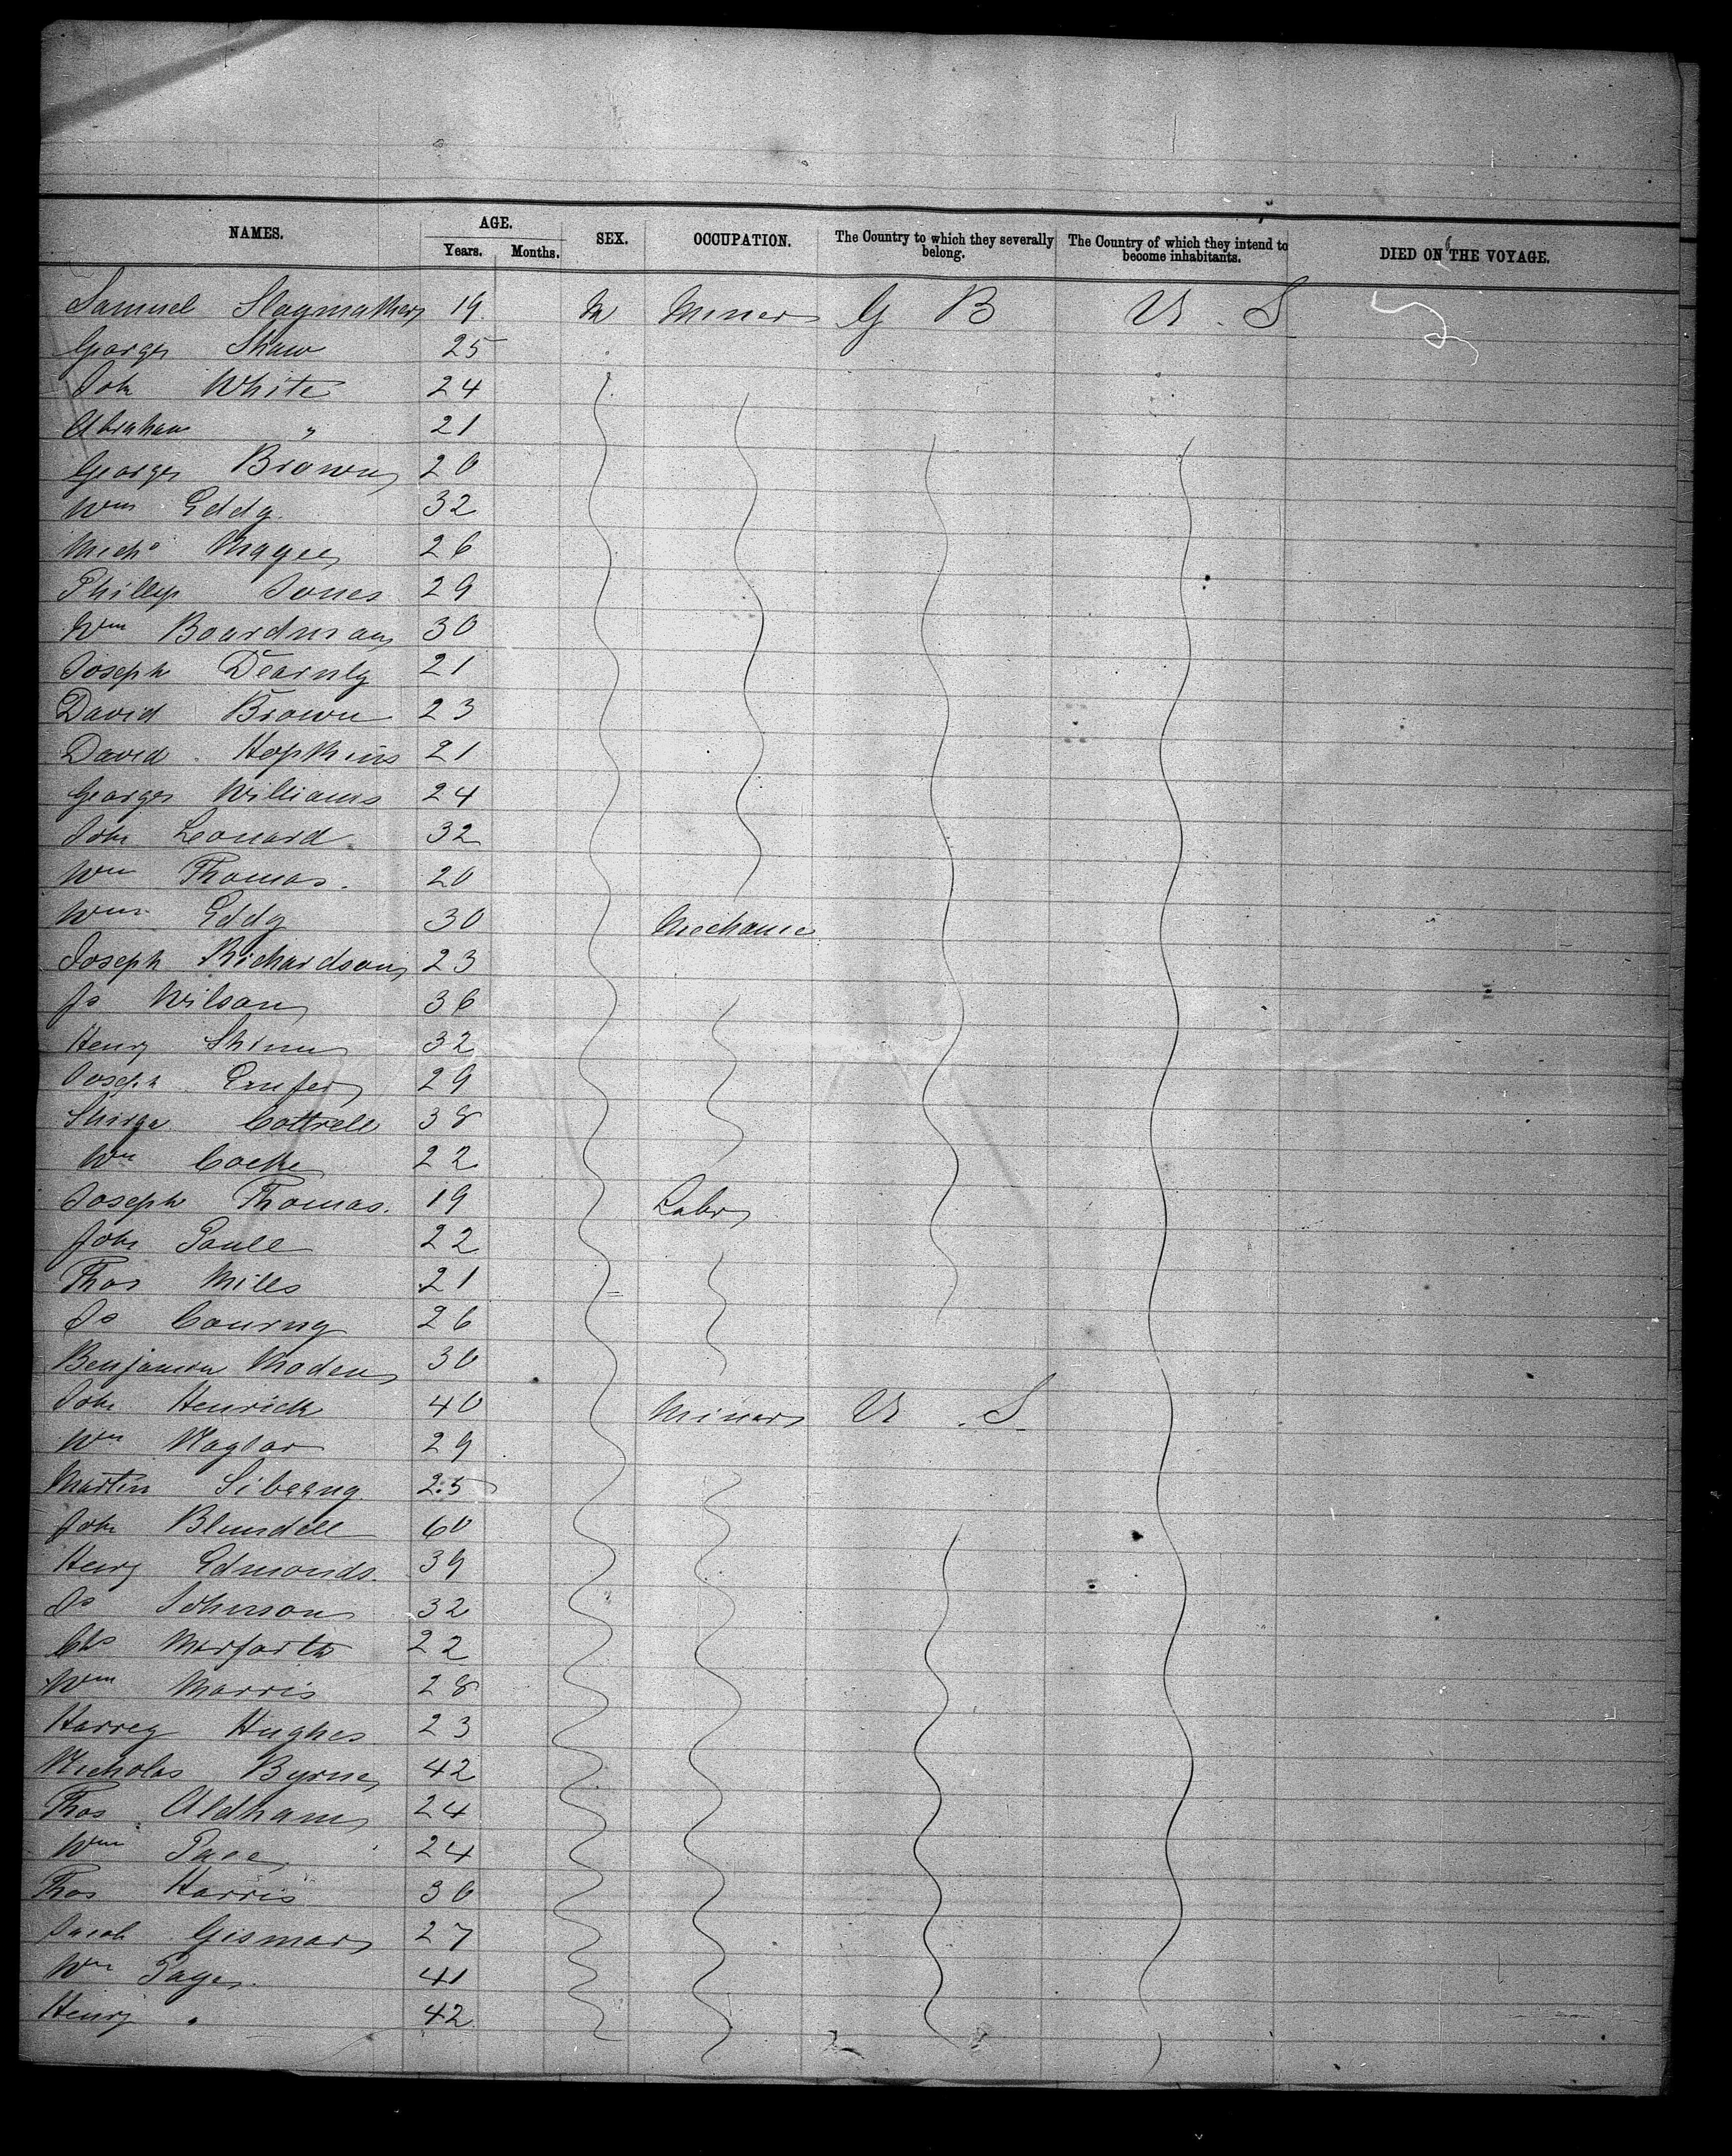 NAMES. AGE. SEX. OCCUPATION. The Country to which they severally belong. The Country of which they intend to become inhabitants. DIED ON THE VOYAGE.
Years. Months.
Samuel 19 M Miner G B U. S
George Shaw 25
Joh White 24
Abraham " 21
George Brown 20
Wm Eddy 32
Micho Magee 26
Phillip Jones 29
Wm Boardman 30
Joseph Dearnly 21
David Brown 23
David Hopkins 21
George Williams 24
Joh Leonard 32
Wm Thomas. 20
Wm Eddy 30 Mechanic
Joseph Richardson 23
Jo Wilson 36
Henry 32
Joseph 29
Cottrell 38
Wm Cocke 22
Joseph Thomas. 19 Labr
Joh Paull 22
Thos Mills 21
Jo 26
Benjamin Moden 30
Joh Henrick 40 Miner U. S
Wm Naylor 29
Martin 25
Joh Blundell 60
Henry Edmonds. 39
Jo Johnson 32
Chs 22
Wm Morris 28
Harrey Hughes 23
Nicholas Byrne 42
Thos Oldham 24
Wm 24
Thos Harris 30
Jacob Gismar 27
Wm Page 41
Henry " 42